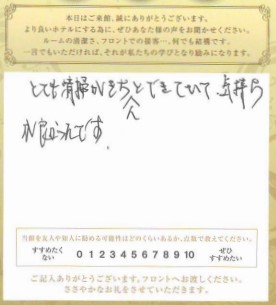 本日はご来館、誠にありがとうございます。
より良いホテルにする為に、ぜひあなた様の声をお聞かせください。
ルームの清潔さ、フロントでの接客…、何でも結構です。
一言でもいただければ、それが私たちの学びとなり励みになります。
とても清掃がきちんとできていて
が良かったです。
当館を友人や知人に勧める可能性はどのくらいあるか、点数で教えてください。
すすめたくない 0 1 2 3 4 5 6 7 8 9 10 ぜひすすめたい
ご記入ありがとうございます。フロントへお渡しください。
ささやかなお礼をさせていただきます。